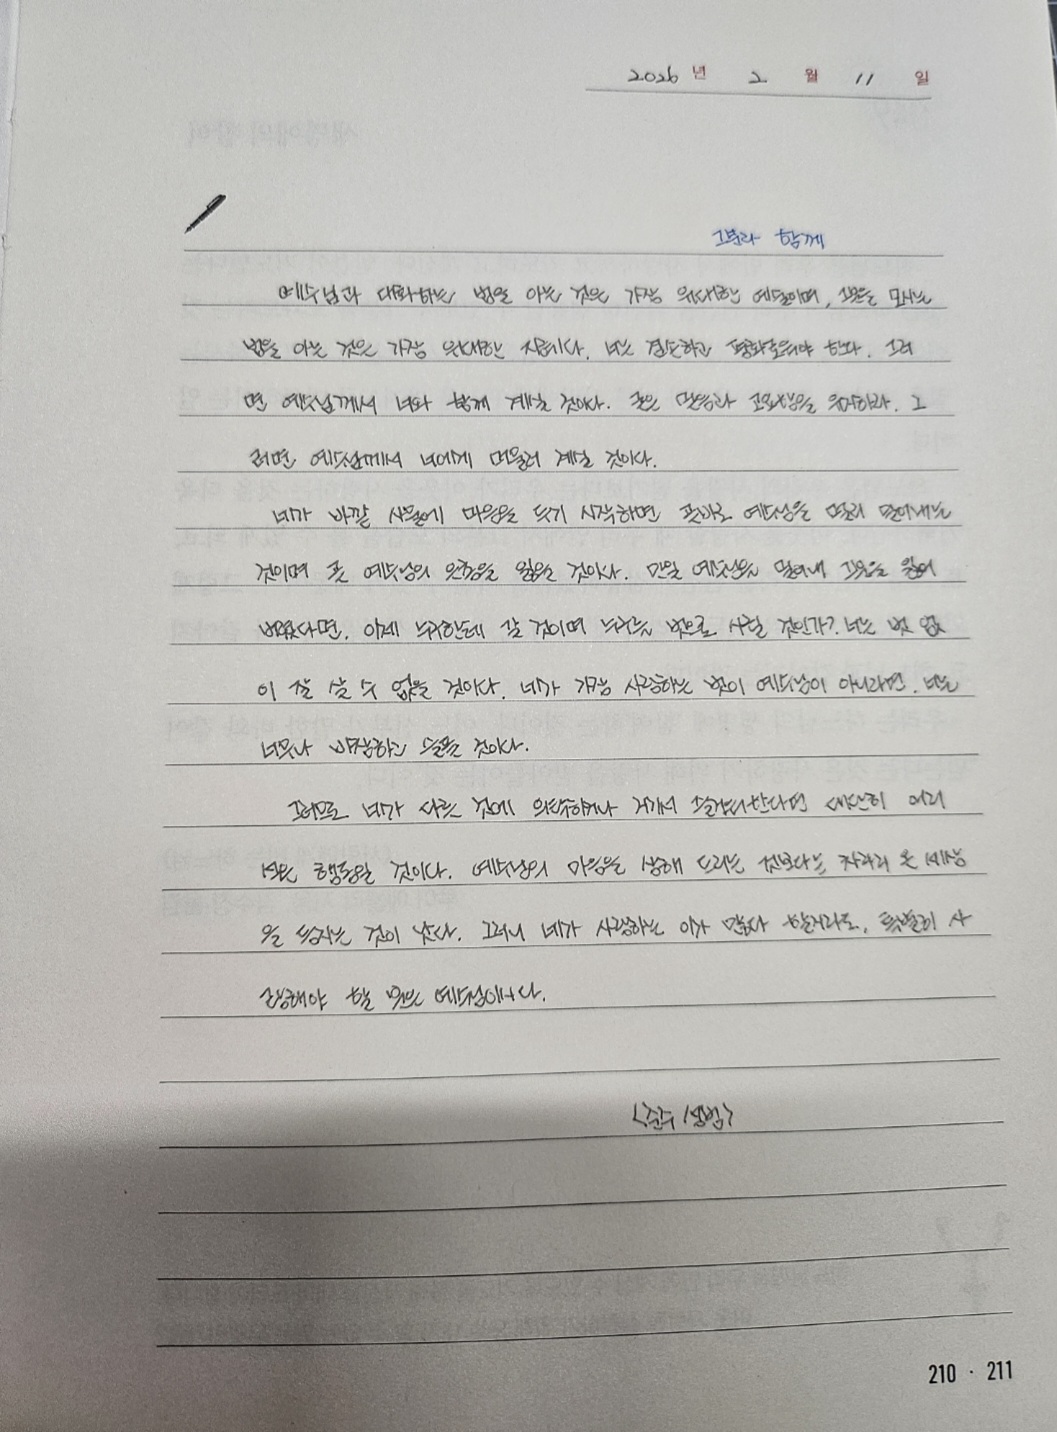 2026 년 2 월 11 일
그분과 함께
예수님과 대화하는 법을 아는 것은 가장 위대한 예술이며, 그분을 모시는
법을 아는 것은 가장 위대한 지혜이다. 너는 겸손하고 평화로워야 한다. 그러
면 예수님께서 너와 함께 계실 것이다. 굳은 믿음과 고요함을 유지하라. 그
러면 예수님께서 너에게 머물러 계실 것이다.
네가 바깥 사물에 마음을 두기 시작하면 곧바로 예수님을 멀리 밀어내는
것이며 곧 예수님의 은총을 잃을 것이다. 만일 예수님을 밀어내 그분을 잃어
버렸다면, 이제 누구한테 갈 것이며 누구를 벗으로 사귈 것인가? 너는 벗 없
이 잘 살 수 없을 것이다. 네가 가장 사랑하는 벗이 예수님이 아니라면, 너는
너무나 비참하고 슬플 것이다.
그러므로 네가 다른 것에 의탁하거나 거기서 즐거워한다면 대단히 어리
석은 행동일 것이다. 예수님의 마음을 상해 드리는 것보다는 차라리 온 세상
을 등지는 것이 낫다. 그러니 네가 사랑하는 이가 많다 할지라도, 특별히 사
랑해야 할 분은 예수님이시다.
<준주성범>
210 · 211